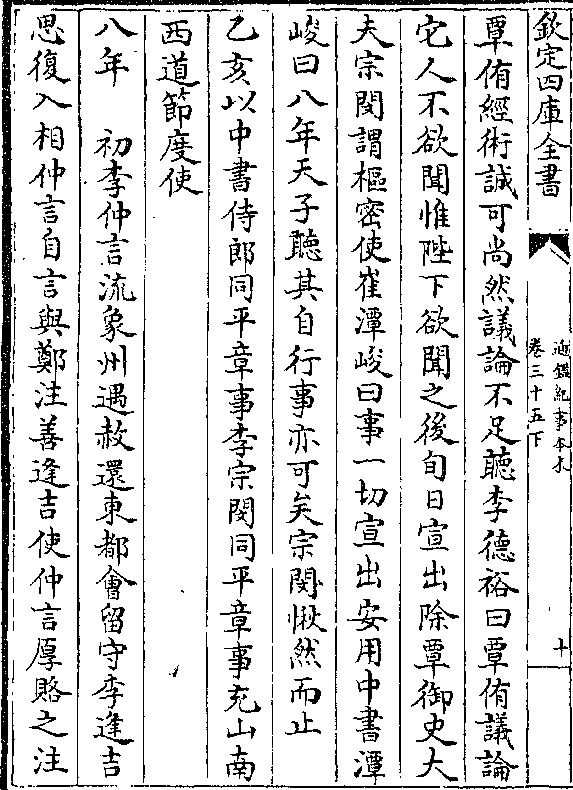 欽定四庫全書
通鑑紀事本末
卷三十五下
十
覃侑經術誠可尚然議論不足聽李德裕曰覃侑議論
它人不欲聞惟陛下欲聞之後旬日宣出除覃御史大
夫宗閔謂樞密使崔潭峻曰事一切宣出安用中書潭
峻曰八年天子聽其自行事亦可矣宗閔愀然而止
乙亥以中書侍郎同平章事李宗閔同平章事充山南
西道節度使
八年　初李仲言流象州遇赦還東都會留守李逢吉
思復入相仲言自言與鄭注善逢吉使仲言厚賂之注